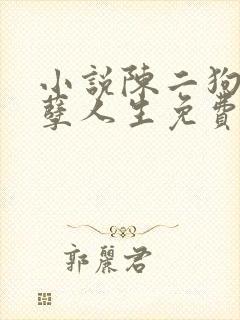 小說陳二狗
孽人生免費
郭麗君